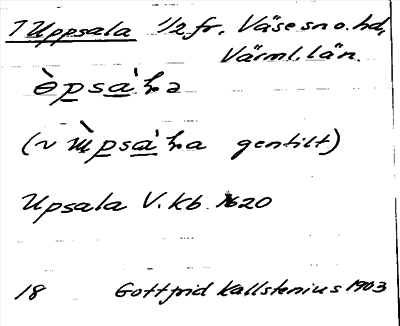 7 Uppsala 1/2 fr. Väse sn o. hd,
Värml. län.
gentilt)
Upsala V. kb. 1620
18 Gottfrid Kallstenius 1903